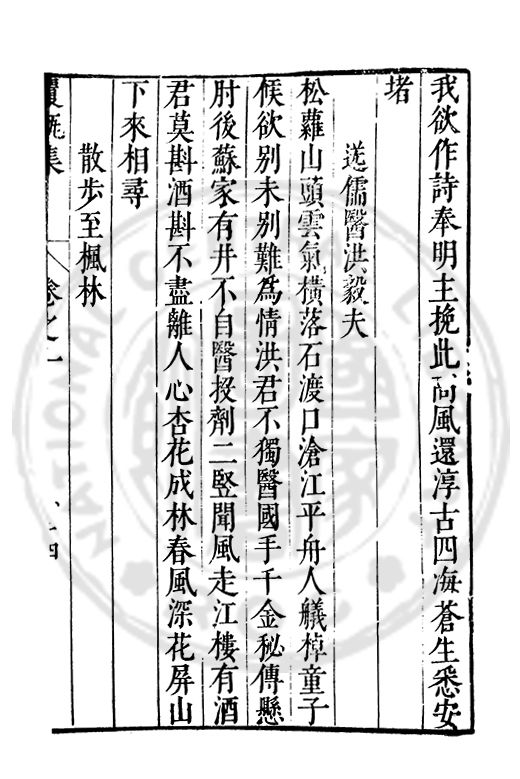 我欲作詩奉明主挽此高風還淳古四海蒼生悉安
堵
送儒醫洪毅夫
松蘿山頭雲氣橫落石渡口滄江平舟人艤棹童子
候欲别未别難為情洪君不獨醫國手千金秘傳懸
肘後蘇家有井不自醫投劑二竪聞風走江樓有酒
君莫斟酒斟不盡離人心杏花成林春風深花屏山
下來相尋
散步至楓林
覆瓿集
卷之一
NATIONAL CENTRAL